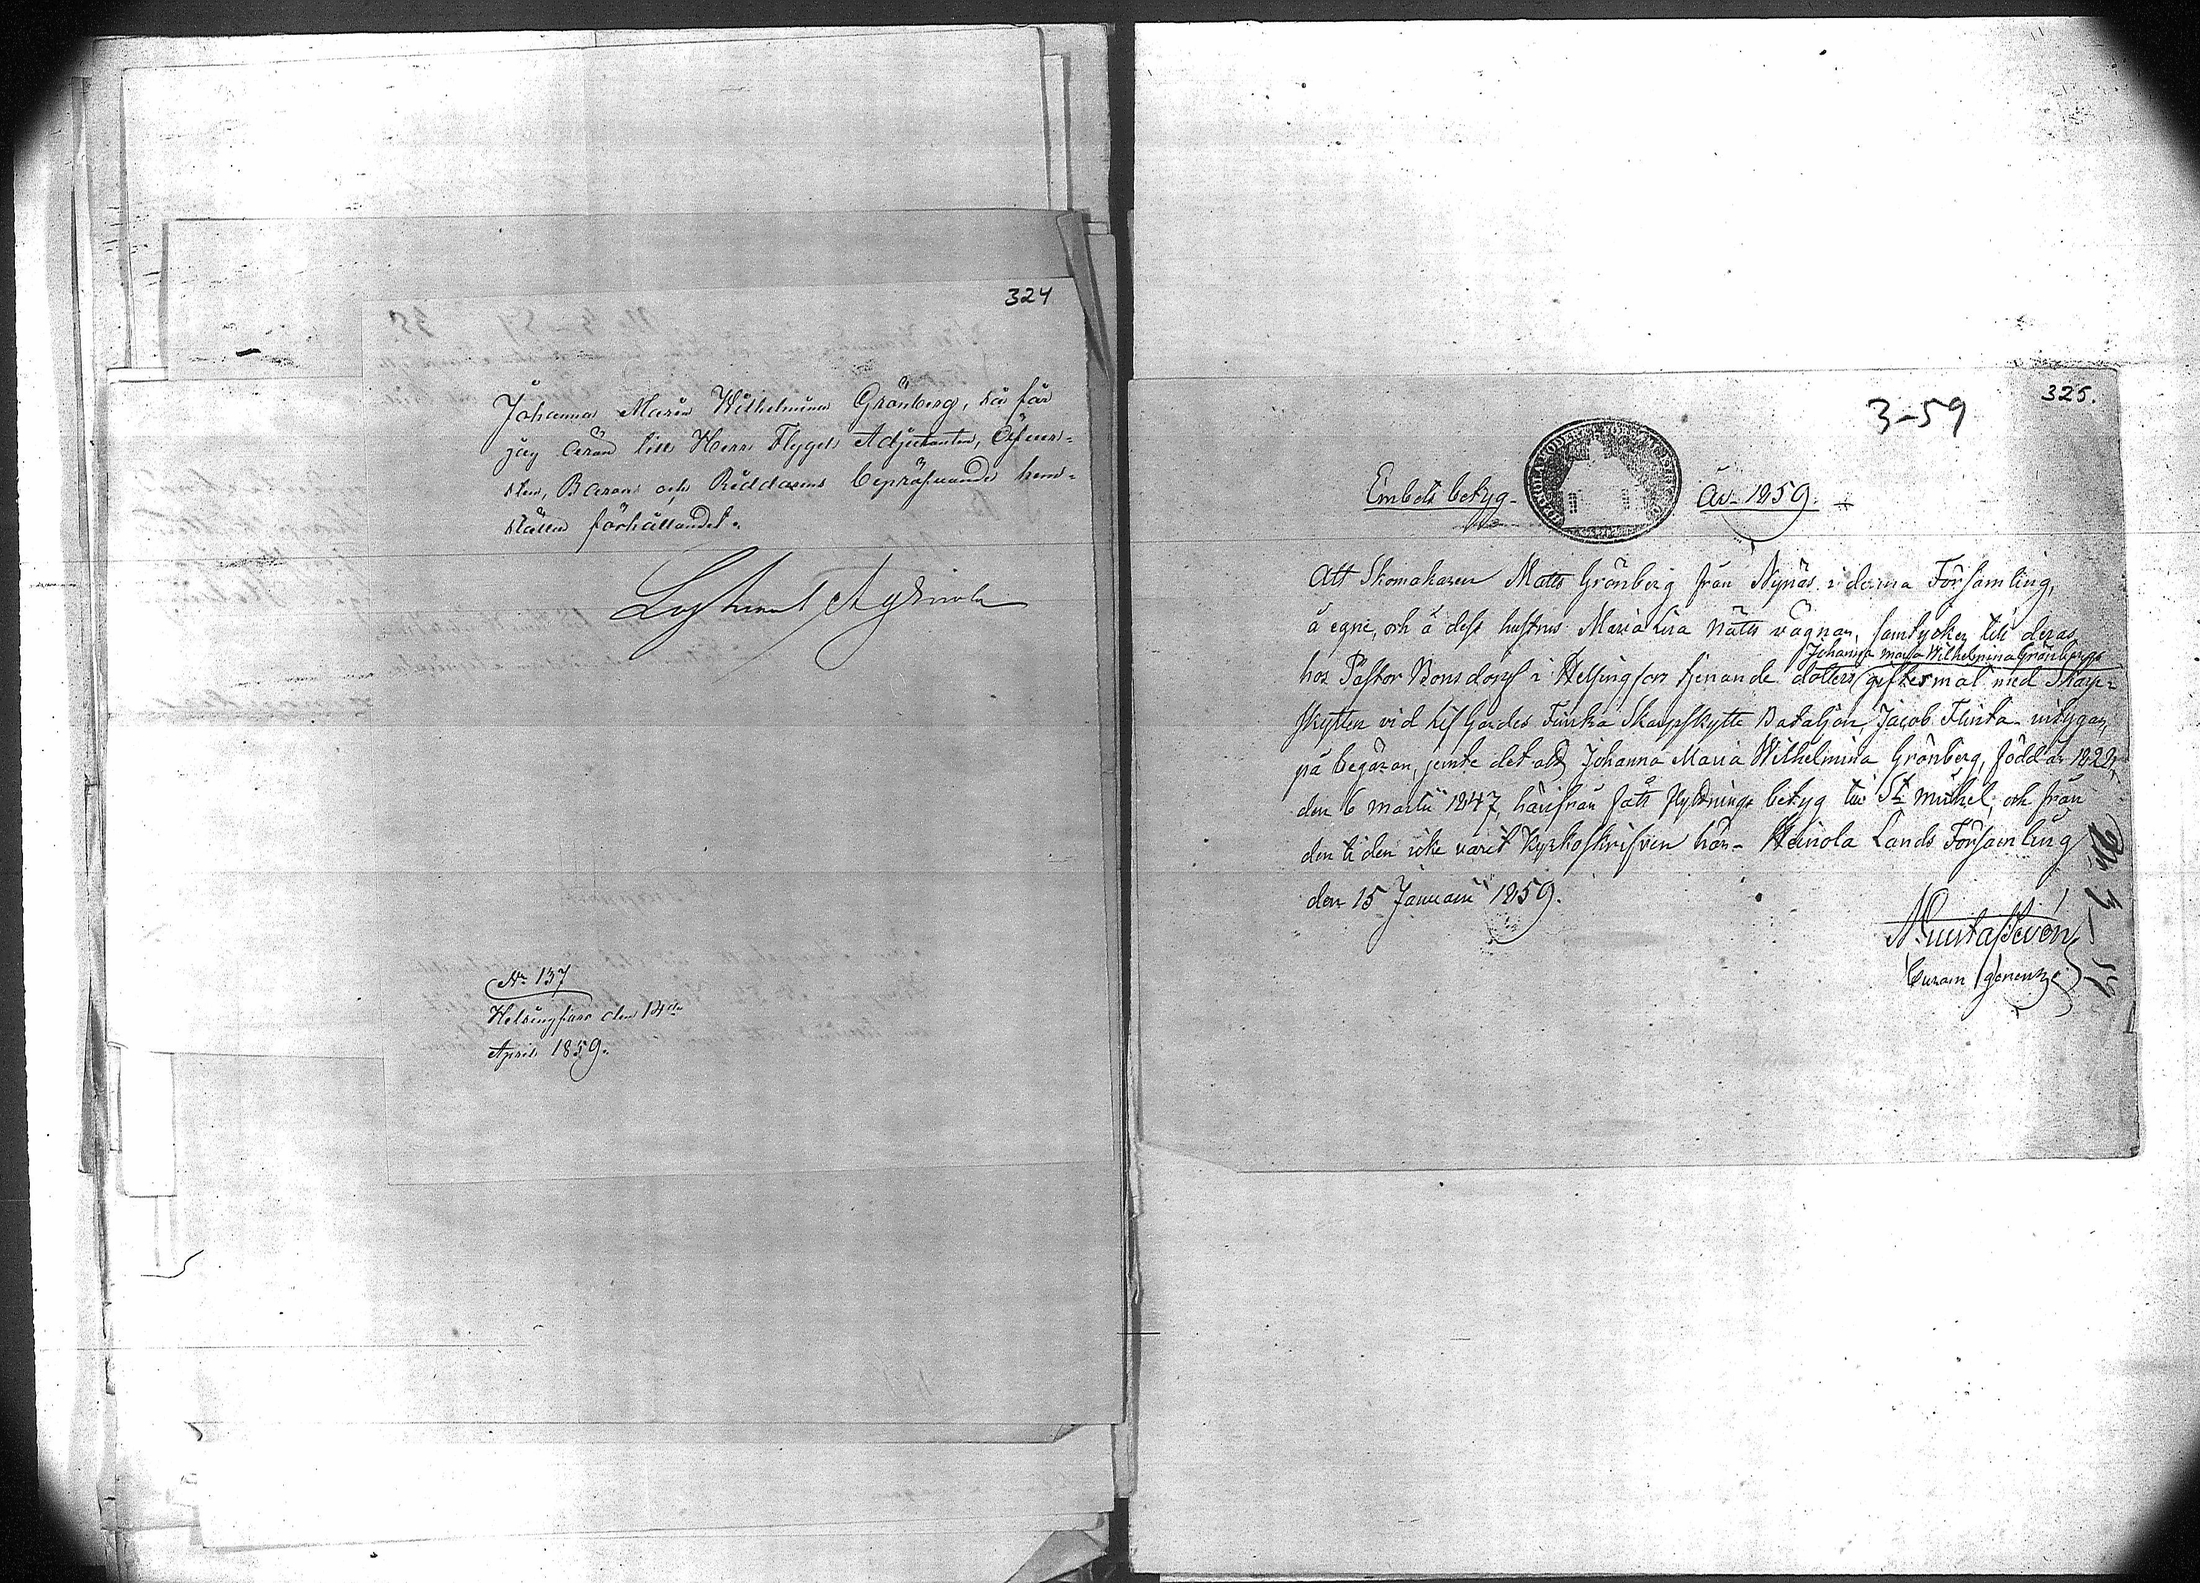 324
Johanna Maria Wilhelmina Grönberg, så får
jag äran till Herr Flygel Adjutanten, Öfver-
sten, Baron och Riddarens bepröfvande hem-
ställa förhållandet.
No 137
Helsingfors den 14de
April 1859.
325.
3-59
Embets betyg år 1859.
Att Skomakaren Matts Grönberg från Nynäs i denna Församling,
å egne, och å dess hustrus Maria Lisa Matts vägnar, samtycker till deras
Johanna Maria Wilhelmina Grönbergs
hos Pastor Bonsdorff i Helsingfors tjenande dotters giftermål med Skarp-
skytten vid Lif Gardes Finska Skarpskytte Bataljon, Jacob Flinta intygar,
på begäran, jemte det att Johanna Maria Wilhelmina Grönberg, född år 1822,
den 6 Martii 1847, härifrån fått flyttnings betyg till St Michel, och från
den tiden icke varit kyrkoskrifven här. Heinola Lands Församling
den 15 Januarii 1859.
Curam gerens